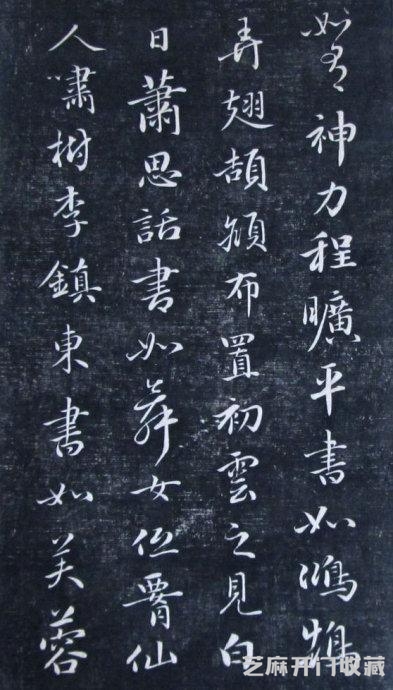 如有神力程曠平書如鴻鵠
弄翅頡頏布置初雲之見白
日蕭思話書如舞女低腰仙
人嘯樹李鎮東書如芙蓉
芝麻开门收藏